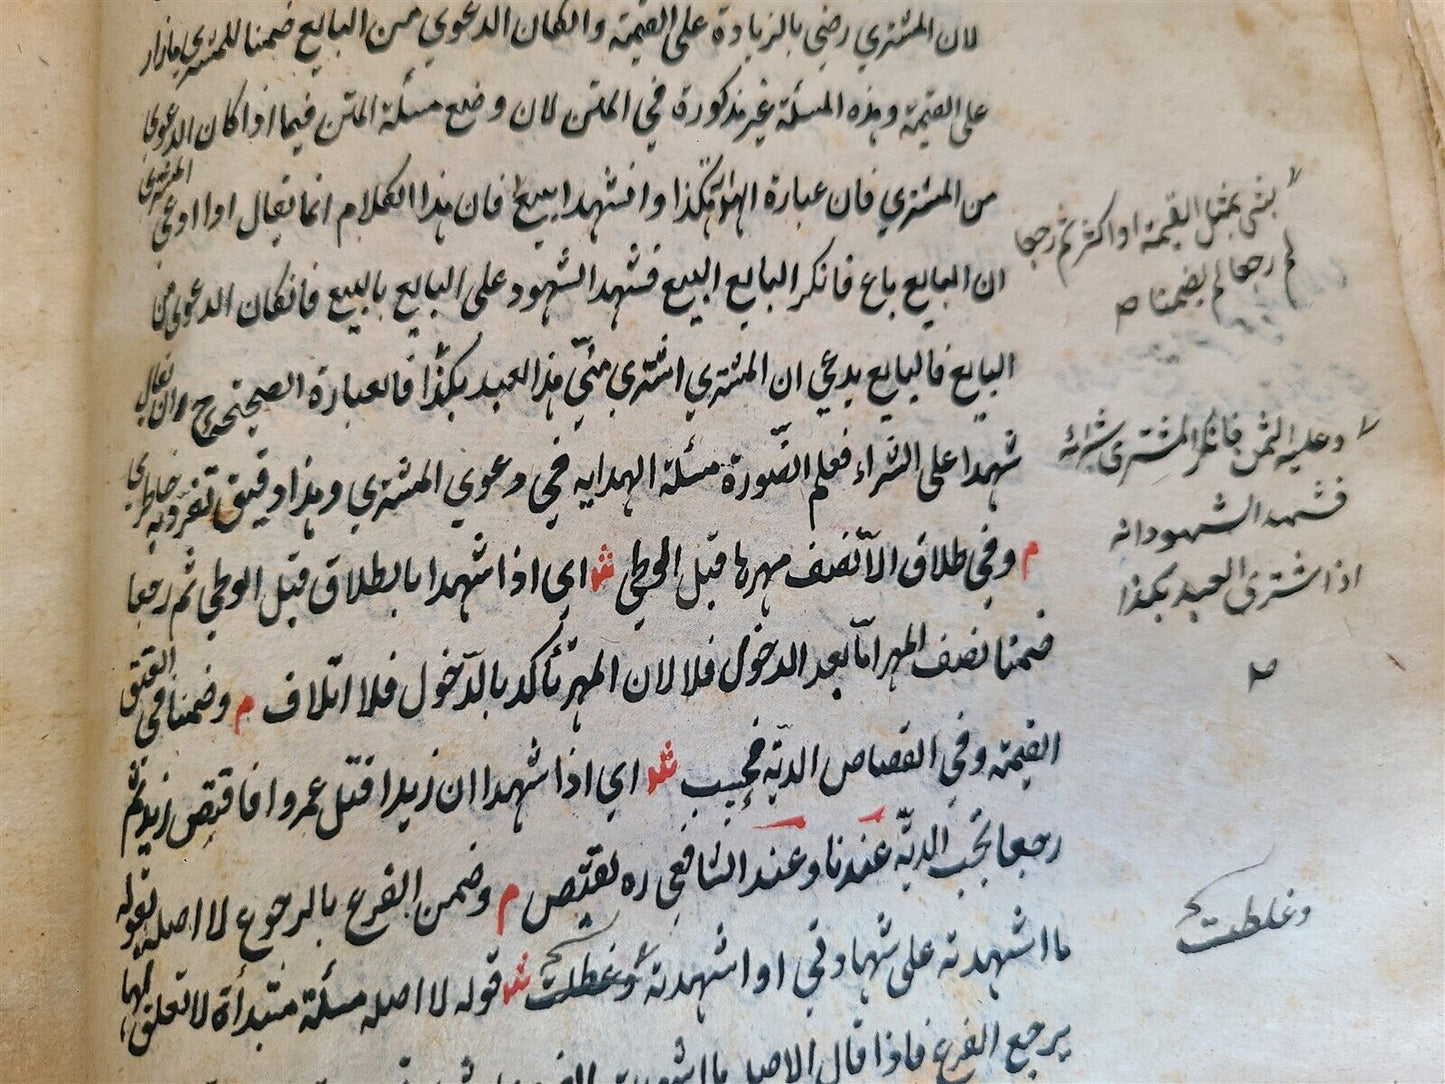 لان المشتري رضي بالزيادة على القيمة وان كان الدعوي من البايع ضمنا للمشتري ما زاد
على القيمة وهذه المسئلة غير مذكورة في المتن لان وضع مسئلة المتن فيما اذا كان الدعوى
من المشتري فان عبارة الهداية هكذا وان شهدا ببيع فان هذا الكلام انما يقال اذا ادعى المشتري
ان البايع باع فانكر البايع البيع فشهد الشهود على البايع بالبيع فان كان الدعوى من
البايع فالبايع يدعي ان المشتري اشترى مني هذا العبد بكذا فالعبارة الصحيحة ح ان يقال
شهدا على الشراء فعلم ان صورة مسئلة الهداية في دعوي المشتري وهذا دقيق تفرد به خاطري
م وفي طلاق الا نصف مهرها قبل الوطي ش اي اذا شهدا بالطلاق قبل الوطي ثم رجعا
ضمنا نصف المهر اما بعد الدخول فلا لان المهر تأكد بالدخول فلا اتلاف م وضمنا في العتق
القيمة وفي القصاص الدية فحسب ش اي اذا شهدا ان زيدا قتل عمروا فاقتص زيد ثم
رجعا تجب الدية عندنا وعند الشافعي ره يقتص م وضمن الفرع بالرجوع لا اصله بقوله
ما اشهدته على شهادتي او اشهدته وغلطت ش قوله لا اصله مسئلة مبتدأة لا تعلق لها
يرجع الفرع فاذا قال الاصل ما اشهدت
بشئ بمثل القيمة او اكثر ثم رجعا
لم يضمنا صح
وعليه الثمن فانكر المشترى شرائه
فشهد الشهود انه
اشترى العبد بكذا
صح
وغلطت